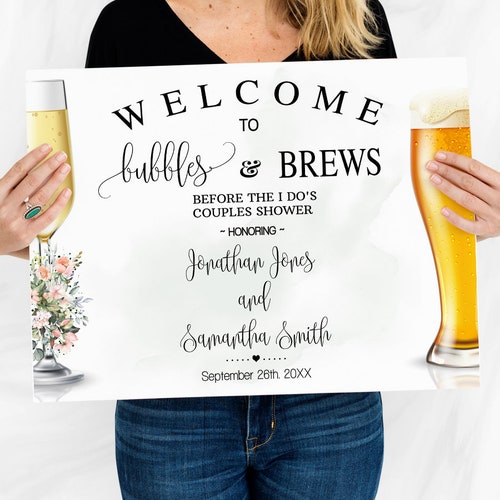 WELCOME
TO
bubbles & BREWS
BEFORE THE I DO'S
COUPLES SHOWER
~ HONORING ~
Jonathan Jones
and
Samantha Smith
September 26th. 20XX